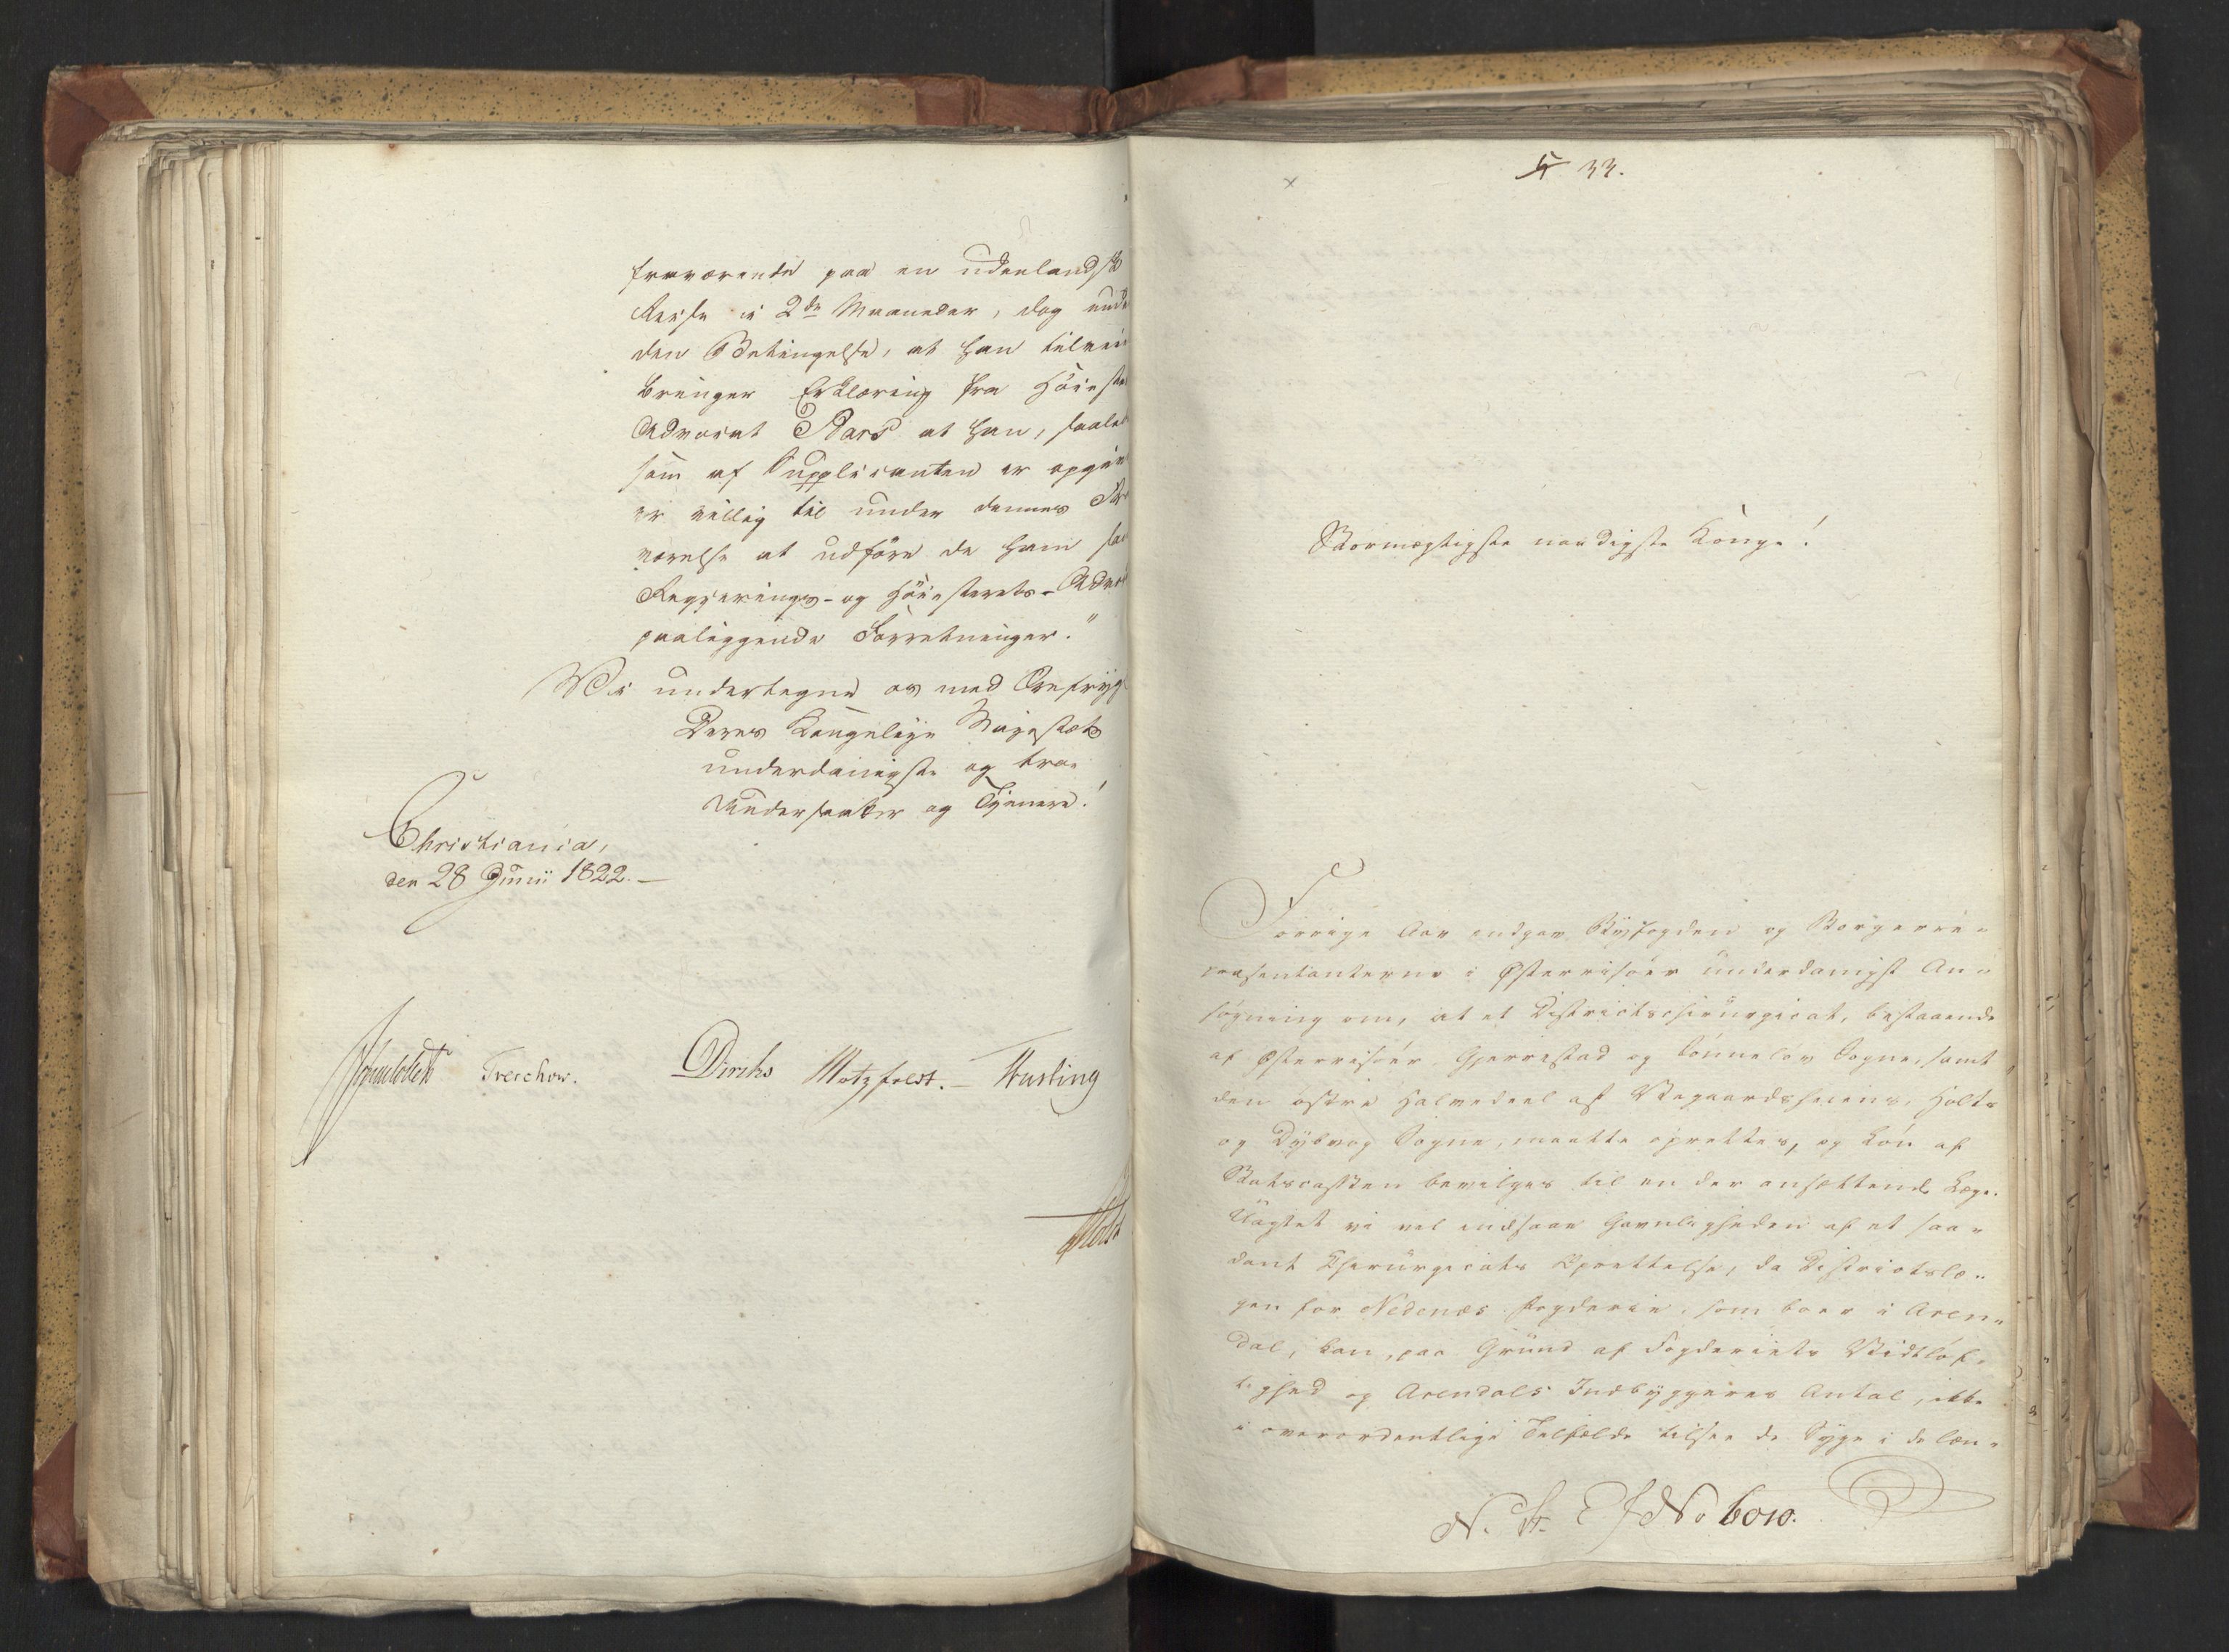 fraværende paa en udenlandsk
Reise i 2de Maaneder, dog unde
den Betingelse, at han tilvei
bringer Erklæring fra Höieste
Advocat at han, saaled
som af Supplicanten er opgiv
er villig til under dennes Fra
værelse at udföre de ham som
Regjerings- og Höiesterets-Advoc
paaliggende Forretninger."
Vi undertegne os med Ærefrygt
Deres Kongelige Majestæts
underdanigste og troe
Undersaatter og Tjenere!
Christiania,
den 28 Junii 1822.
Sommerhielm Treschow. Diriks Motzfeldt. Fasting
Holst
5 33.
Stormægtigste naadigste Konge!
Forrige Aar indgav Byfogden og Borgerre-
præsentanterne i Østerriisöer underdanigst An-
søgning om, at et Districtschirurgicat, bestaaende
af Østerriisöer, Gjerrestad og Sönneløv Sogne, samt
den østre Halvedeel af Vegaardsheiens, Holts
og Dybvog Sogne, maatte oprettes, og Lön af
Statscassen bevilges til en der ansættende Læge.
Uagtet vi vel indsaae Gavnligheden af et saa-
dant Chirurgicats Oprettelse, da Districtslæ-
gen for Nedenæs Fogderie, som boer i Aren-
dal, kan, paa Grund af Fogderiets Vidtløf-
tighed og Arendals Indbyggeres Antal, ikke
i overordentlige Tilfælde tilsee de Syge i de læn-
N. St. E J No 6010.